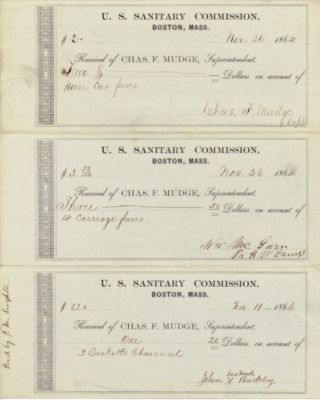 U. S. SANITARY COMMISSION,
BOSTON, MASS.
$ 2. Nov. 26 1864
Received of CHAS. F. MUDGE, Superintendent,
Two Dollars on account of
Horse Car fares
Chas. F. Mudge
U. S. SANITARY COMMISSION,
BOSTON, MASS.
$ 3. 50/100 Nov. 26. 1864
Received of CHAS. F. MUDGE, Superintendent,
Three 50 Dollars on account of
14 Carriage fares.
Wm Mc Garn
U. S. SANITARY COMMISSION,
BOSTON, MASS.
$ 1.20 Nov. 11 - 1864
Received of CHAS. F. MUDGE, Superintendent,
One 20 Dollars on account of
2 Casketts Charcoal
his mark
John X Buckley
Paid by J. M.